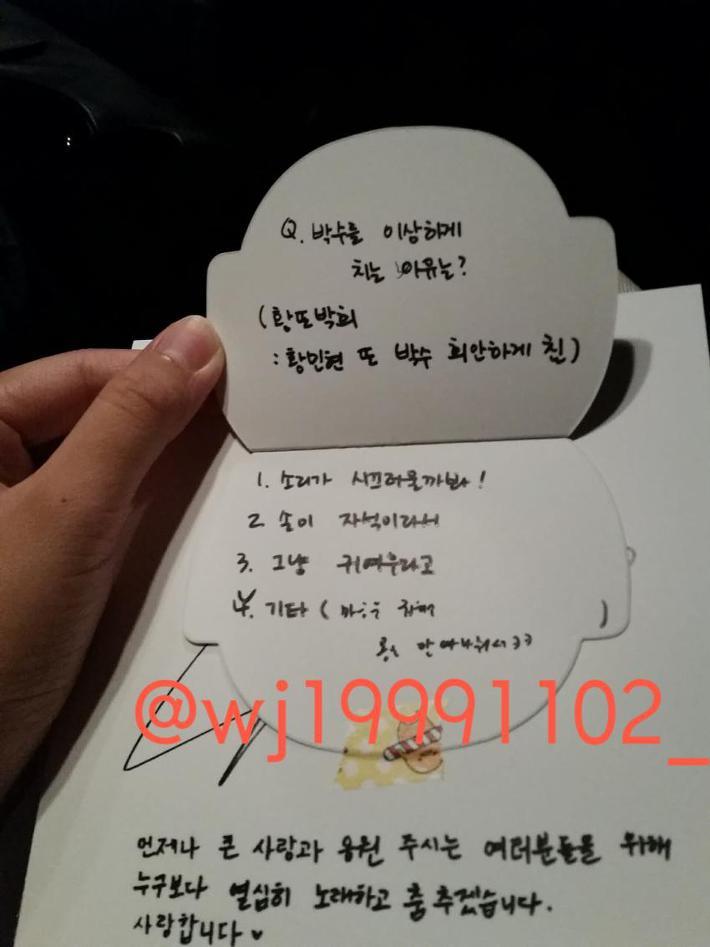 Q. 박수를 이상하게
치는 이유는?
(황또박희
: 황민현 또 박수 희안하게 친)
1. 소리가 시끄러울까봐!
2. 손이 자석이라서
3. 그냥 귀여우라고
4. 기타 (
)
@wj19991102_
언제나 큰 사랑과 응원 주시는 여러분들을 위해
누구보다 열심히 노래하고 춤 추겠습니다.
사랑합니다♥